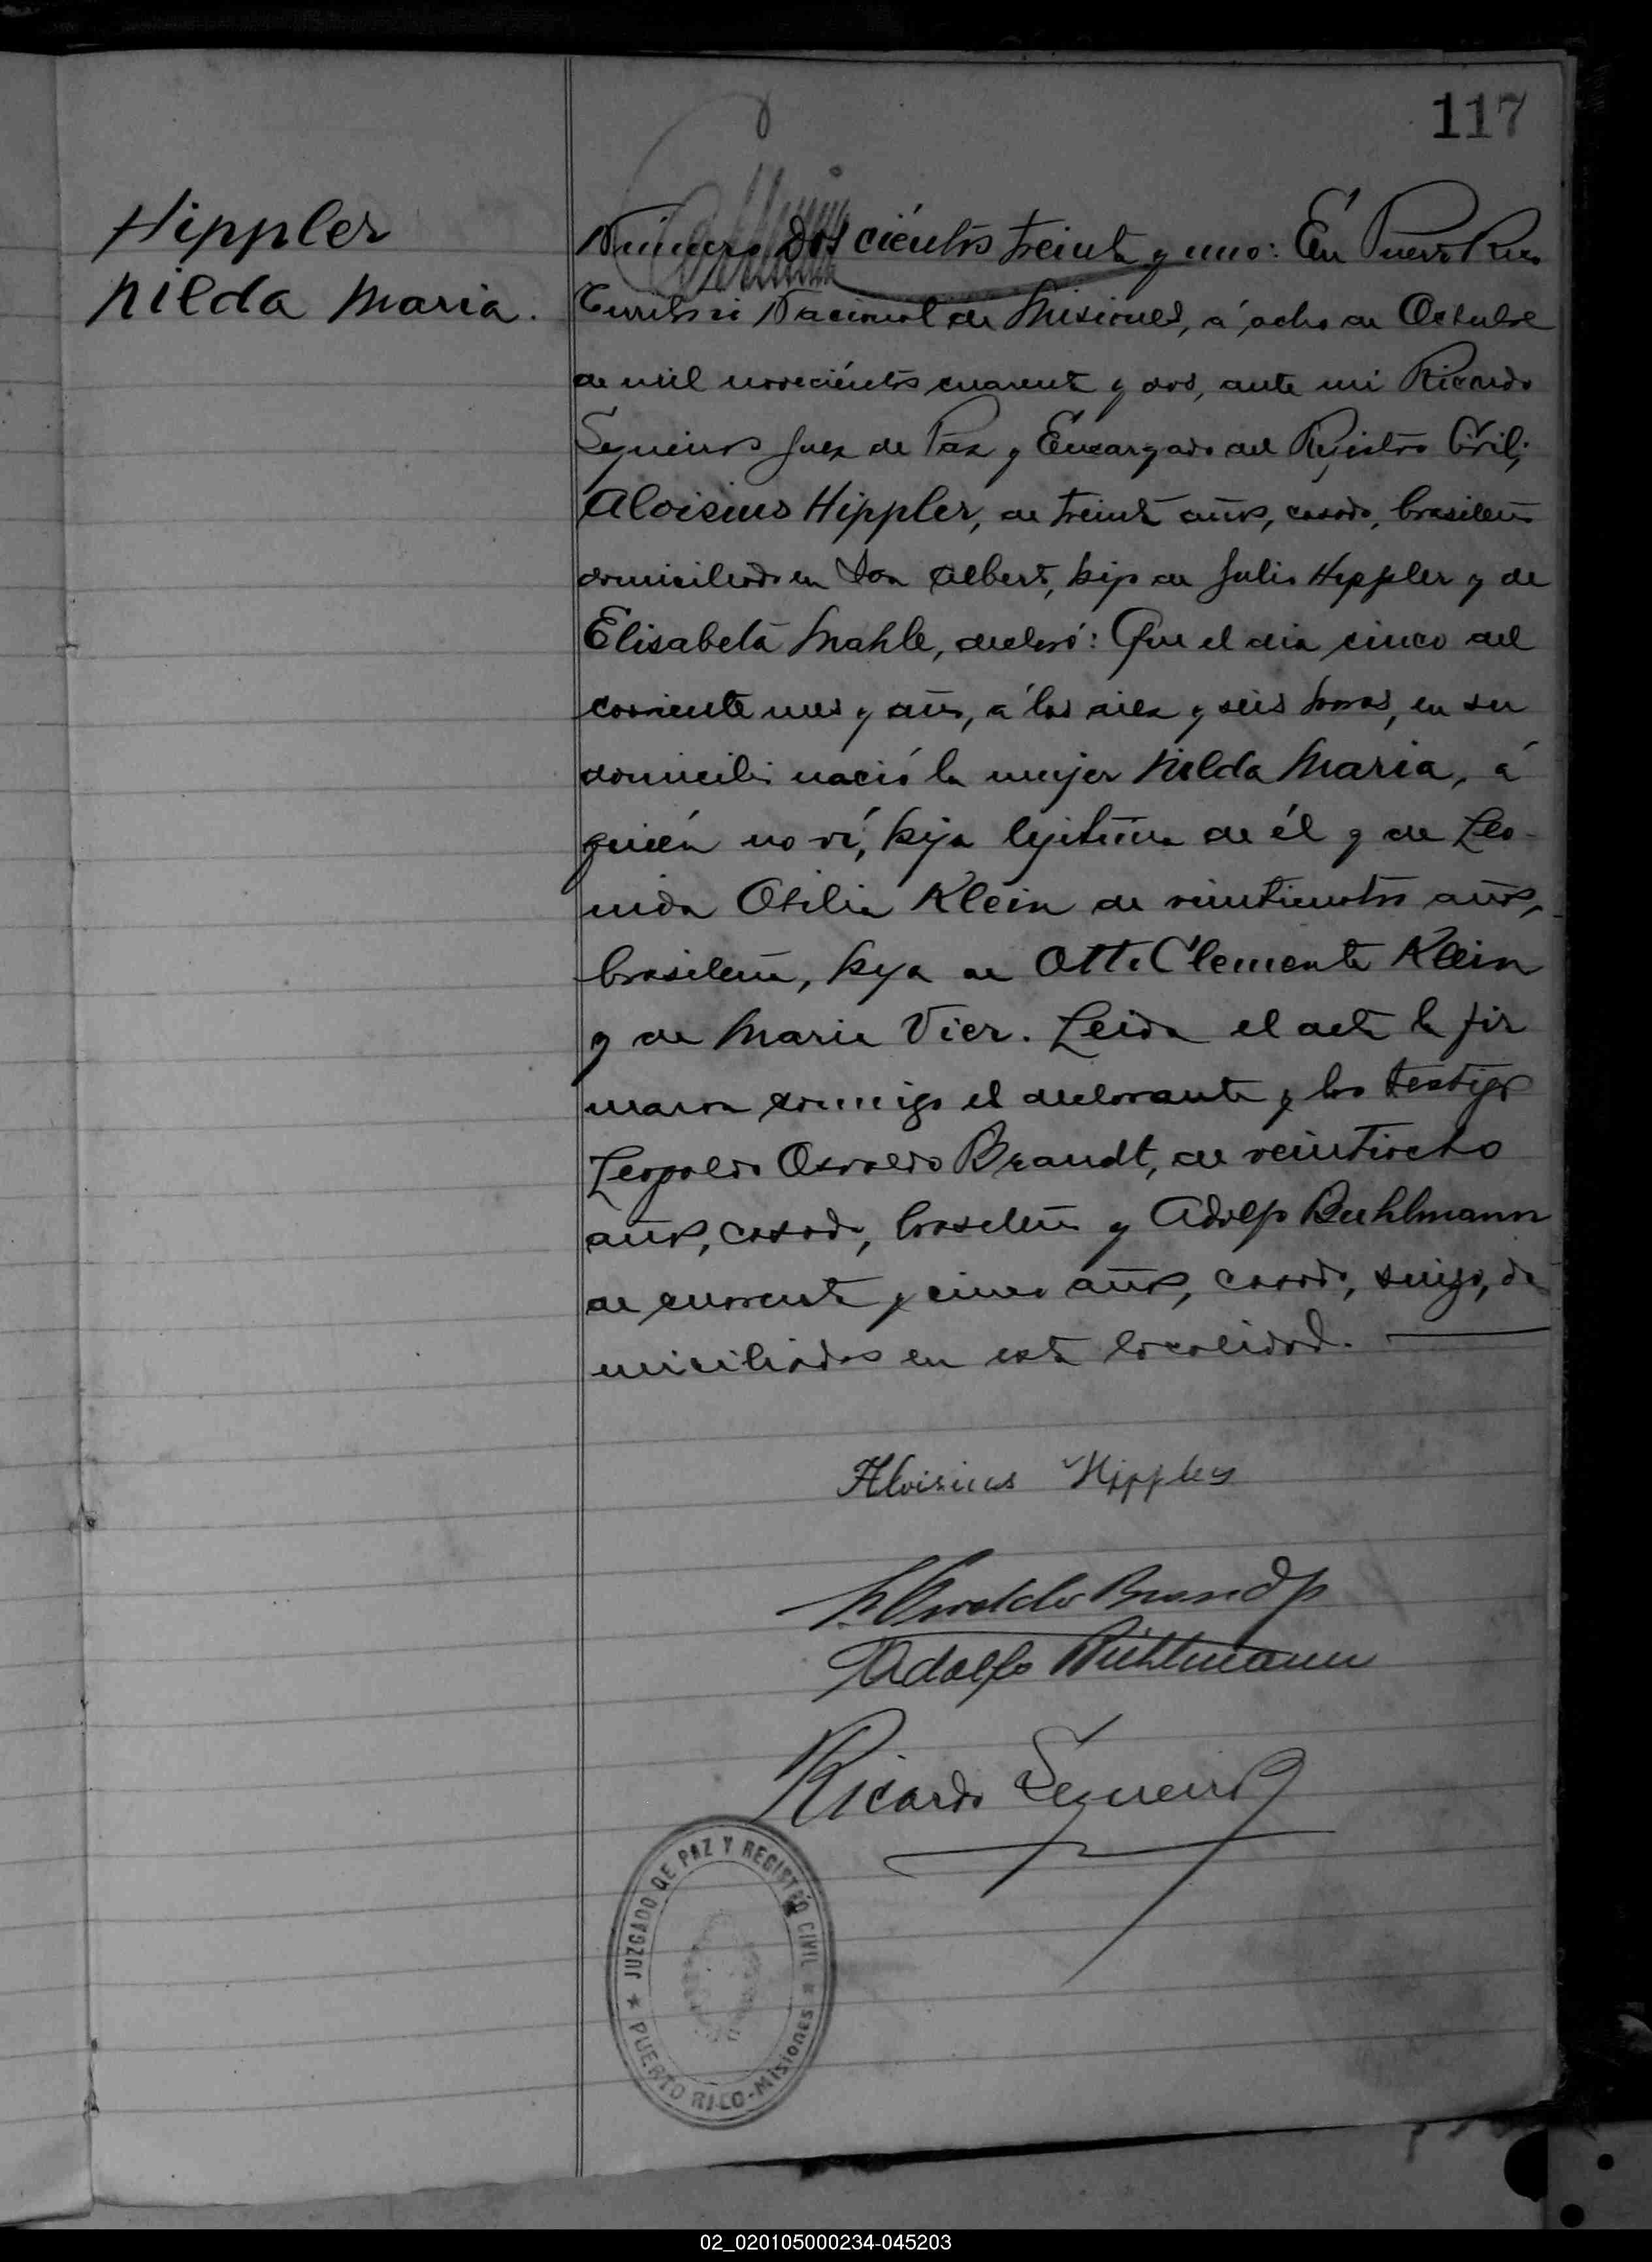 117
Hippler
Nilda Maria.
Número Doscientos treinta y uno: En Puerto Rico
Territorio Nacional de Misiones, á ocho de Octubre
de mil novecientos cuarenta y dos, ante mi Ricardo
Sequeiros Juez de Paz y Encargado del Registro Civil;
Aloisius Hippler, de treinta años, casado, brasileño
domiciliado en San Alberto, hijo de Julio Hippler y de
Elisabeta Mahle, declaró: Que el dia cinco del
corriente mes y año, á las diez y seis horas, en su
domicilio nació la mujer Nilda Maria, á
quién no ví, hija legitima de él y de Leo-
nida Otilia Klein de veinticuatro años,
brasileña, hija de Otto Clemente Klein
y de Maria Vier. Leida el acta la fir
maron conmigo el declarante y los testigos
Leopoldo Osvaldo Brandt, de veintiocho
años, casado, brasileño y Adolfo Buhlmann
de cuarenta y cinco años, casado, suizo, do
miciliados en esta localidad.
Aloisius Hippler
L. Osvaldo Brandt
Adolfo Bühlmann
Ricardo Sequeiros
JUZGADO DE PAZ Y REGISTRO CIVIL
PUERTO RICO-MISIONES
02_020105000234-045203